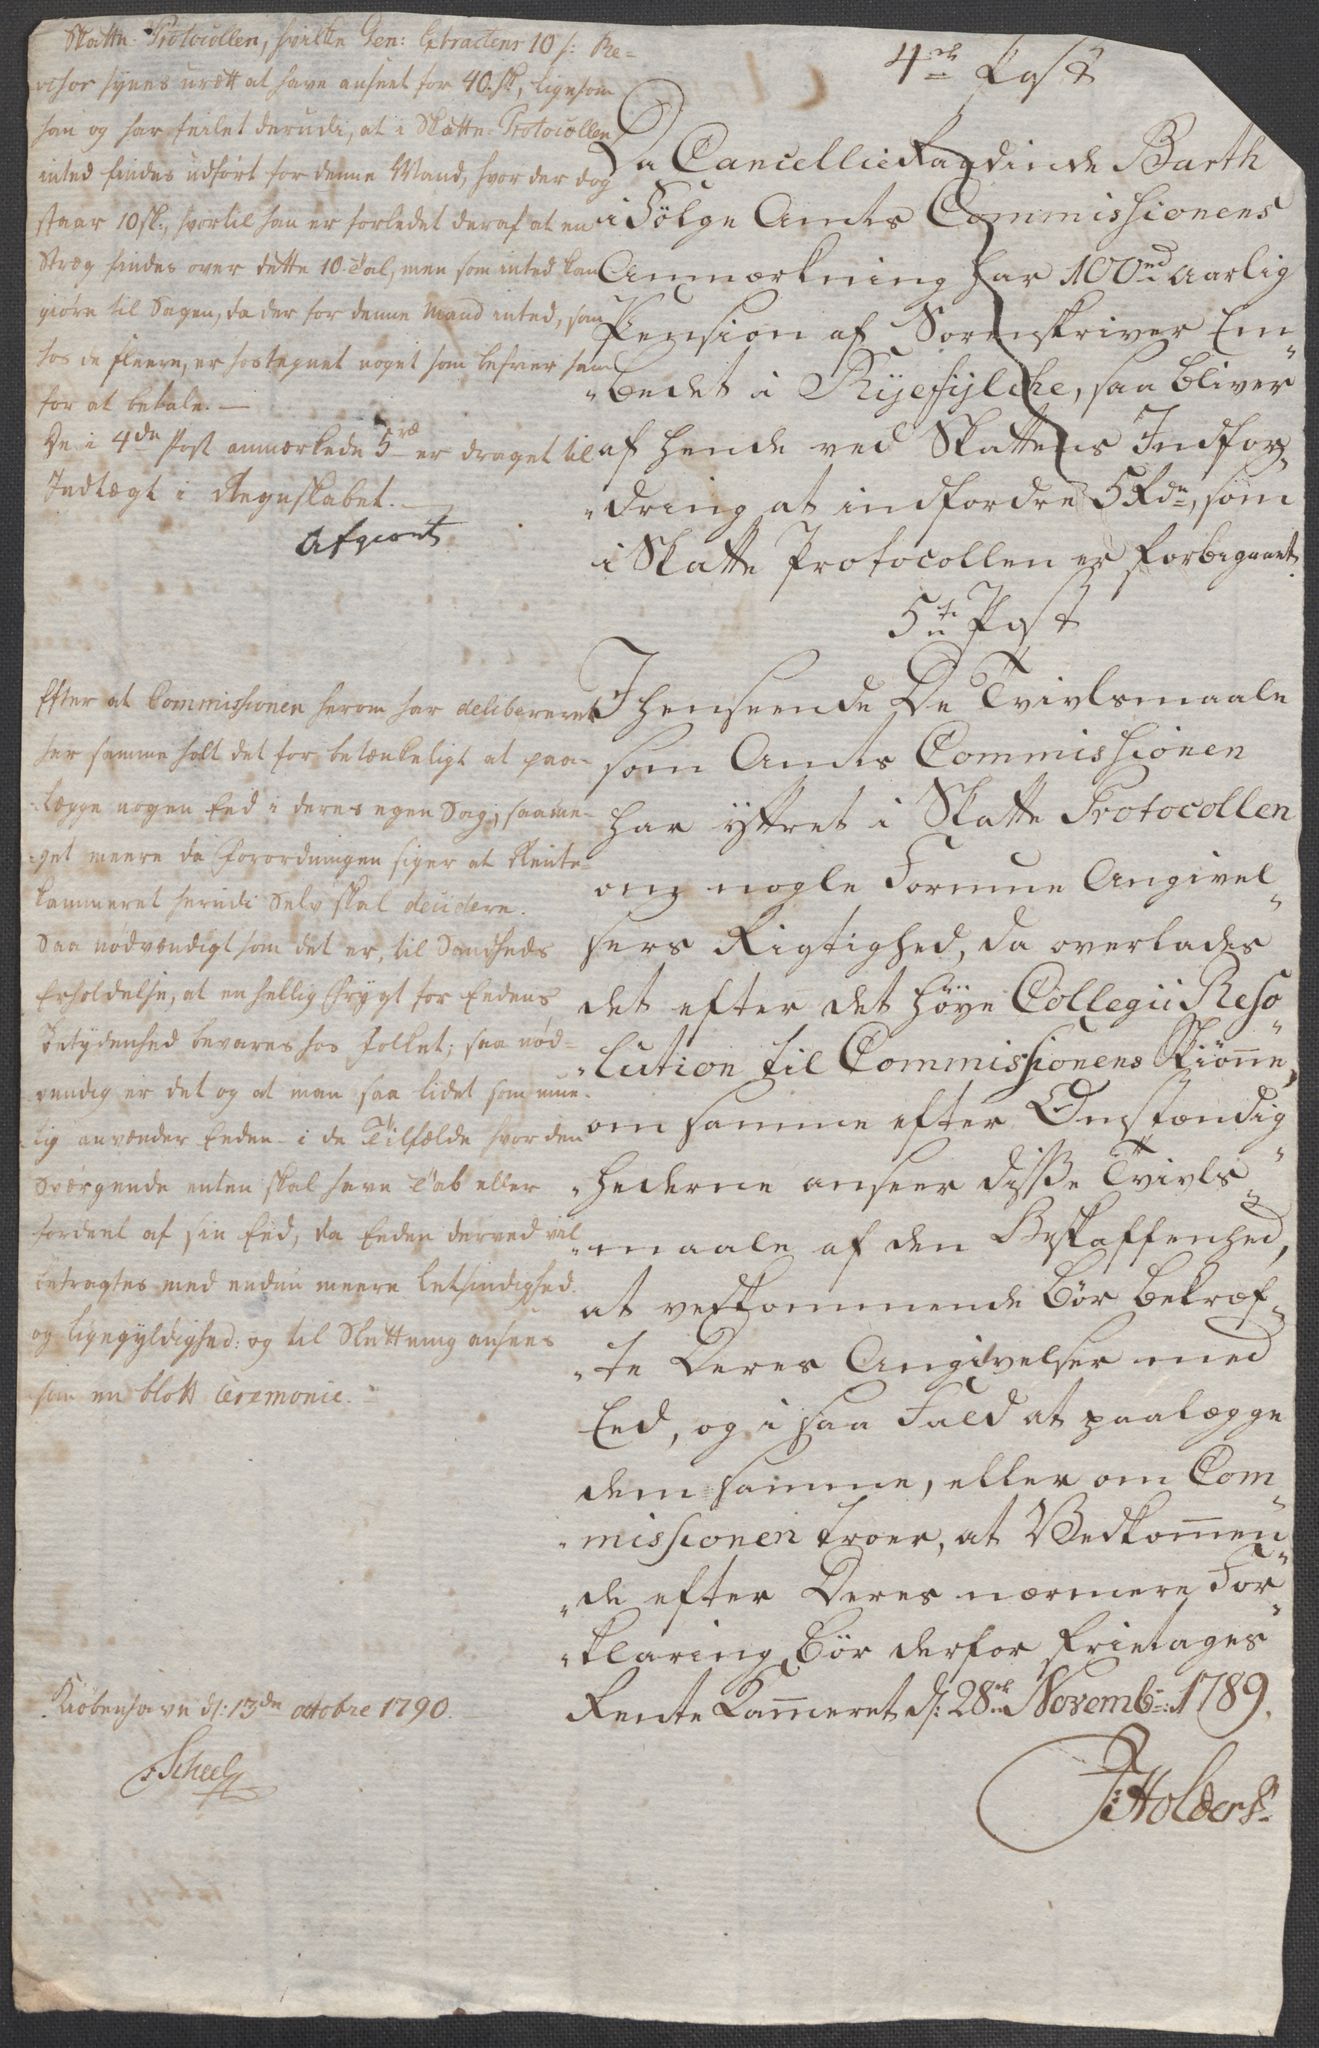 Skatte-Protocollen, hvilke Gen: Extractens 10 s: Re-
visor synes urætt at have anseet for 40 sk, ligesom
han og har feilet derudi, at i Skatte-Protocollen
inted findes udført for denne Mand, hvor der dog
staar 10 sk:, hvortil han er forledet deraf at en
Stræg findes over dette 10 Tal, men som inted kan
giøre til Sagen, da der for denne Mand inted, som
hos de fleere, er hostegnet noget som befrier ham
for at betale. —
De i 4de Post anmærkede 5 rd er draget til
Indtægt i Regnskabet. —
Afgiort
Efter at Commissionen herom har delibereret
har samme holt det for betænkeligt at paa-
lægge nogen Eed i deres egen Sag; saame-
get meere da Forordningen siger at Rente-
kammeret herudi Selv skal decidere.
Saa nødvændigt som det er, til Sandheds
Erholdelse, at en hellig Frygt for Eedens
Betydenhed bevares hos Folket; saa nød-
vendig er det og at man saa lidet som mue-
lig anvænder Eeden i de Tilfælde hvor den
Sværgende enten skal have Tab eller
fordeel af sin Eed, da Eeden derved vil
betragtes med endnu meere letsindighed
og ligegyldighed: og til Slutning ansees
som en blott Ceremonie.
Kiøbenhavn d: 13de octobre 1790.
Scheel
4de Post
Da CancellieRaadinde Barth
i Følge Amts Commissionens
Anmærkning har 100 rd aarlig
Pension af Sorenskriver Em-
bedet i Ryefylche, saa bliver
af hende ved Skattens Indfor-
dring at indfordre 5 Rdr, som
i Skatte Protocollen er forbigaaet.
5te Post
I henseende De Tvivlsmaale
som Amts Commissionen
har yttret i Skatte Protocollen
om nogle Formue Angivel-
sers Rigtighed, da overlades
det efter det høye Collegii Reso-
lution til Commissionens Skiønne,
om samme efter Omstændig-
hederne anseer disse Tvivls-
maale af den Beskaffenhed,
at vedkommende bør bekræf-
te Deres Angivelser med
Eed, og i saa Fald at paalægge
dem samme, eller om Com-
missionen troer, at Vedkommen-
de efter Deres nærmere For-
klaring bør derfor frietages
Rente Kammeret d: 28de Novembr: 1789.
Holders